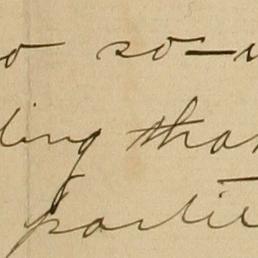 o so-
ling than
partie